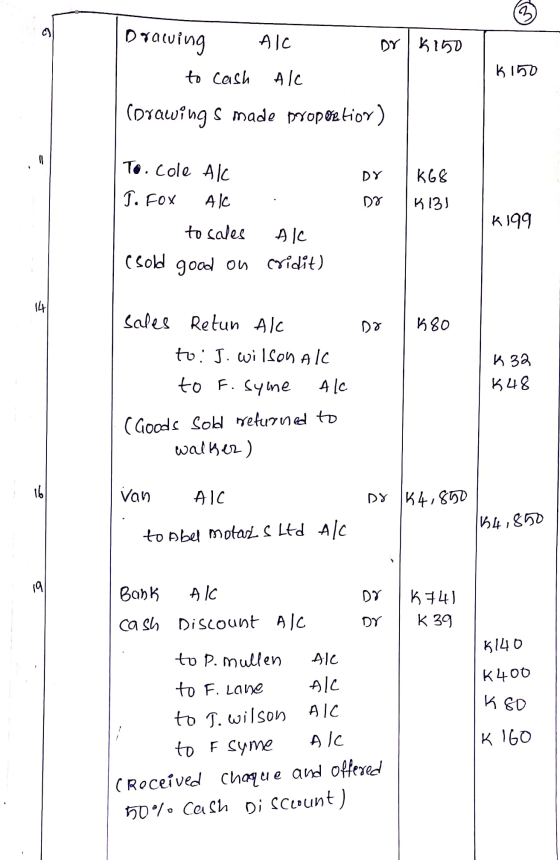 3
9 Drawing A/C Dr K150
to Cash A/C K150
(Drawings made propeetior)
11
To. Cole A/C Dr K68
J. Fox A/C Dr K131
to sales A/C K199
(Sold good on cridit)
14
Sales Retun A/C Dr K80
to: J. wilson A/C K32
to F. Syme A/C K48
(Goods Sold returned to
walker)
16 Van A/C Dr K4,850
to Abel motals Ltd A/C K4,850
19
Bank A/C Dr K741
cash Discount A/C Dr K39
to P. mullen A/C K140
to F. Lane A/C K400
to J. wilson A/C K80
to F Syme A/C K160
(Roceived chaque and offered
50% Cash Di scount)